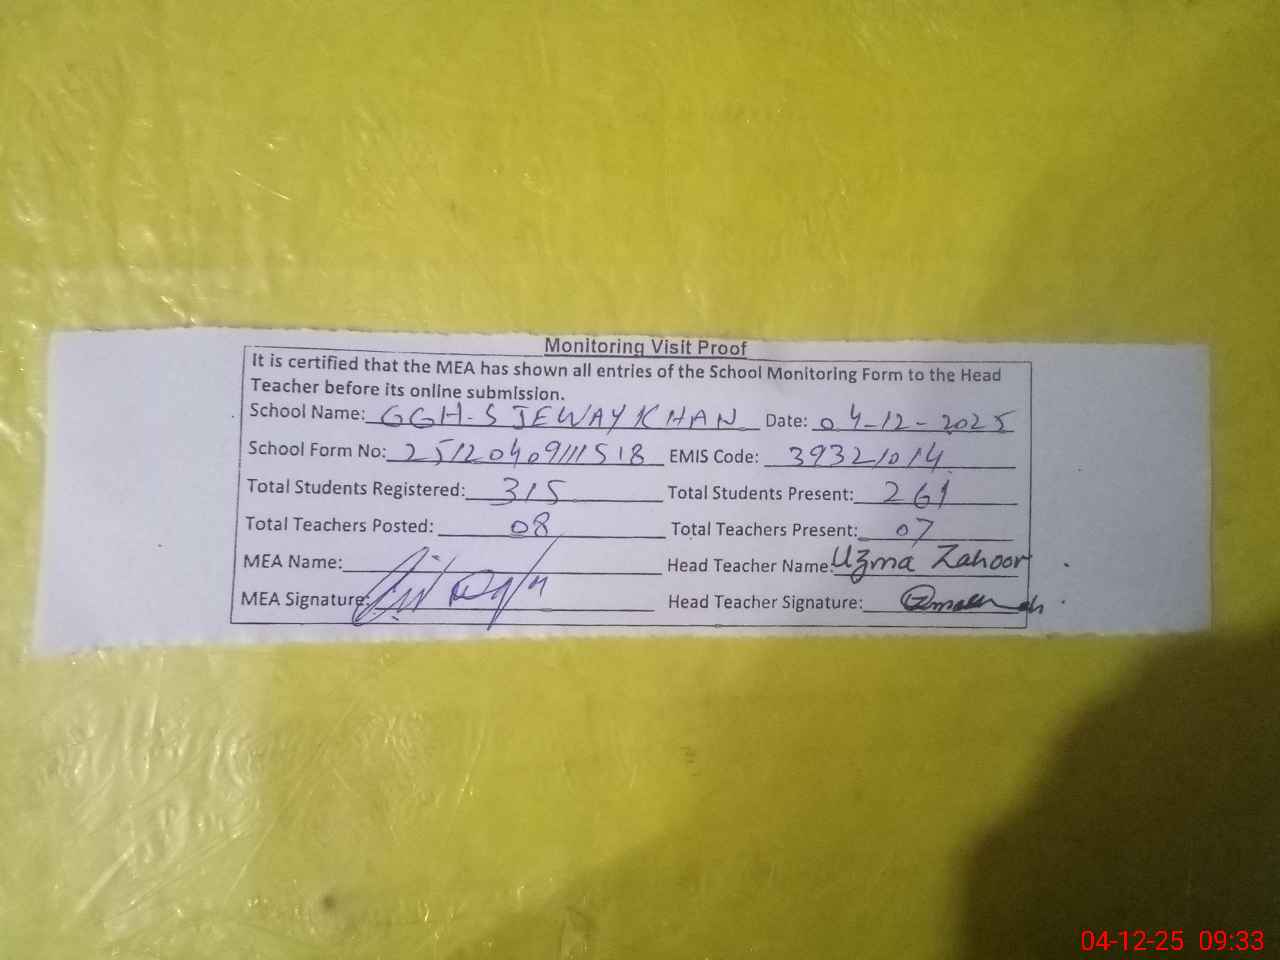 Monitoring Visit Proof
It is certified that the MEA has shown all entries of the School Monitoring Form to the Head
Teacher before its online submission.
School Name: GGH-S JEWAY KHAN Date: 04-12-2025
School Form No: 25120409111518 EMIS Code: 39321014
Total Students Registered: 315 Total Students Present: 261
Total Teachers Posted: 08 Total Teachers Present: 07
MEA Name: Head Teacher Name: Uzma Zahoor
MEA Signature: Head Teacher Signature:
04-12-25 09:33